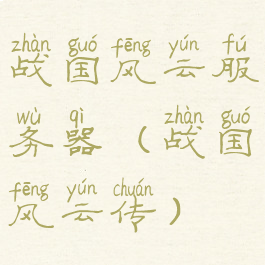 zhàn guó fēng yún fú
战国风云服
wù qì zhàn guó
务器（战国
fēng yún chuán
风云传）